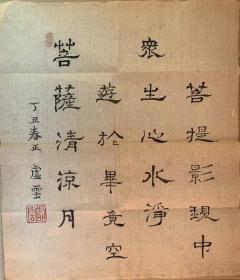 菩提影現中
眾生心水淨
遊於畢竟空
菩薩清涼月
丁丑春正 虛雲